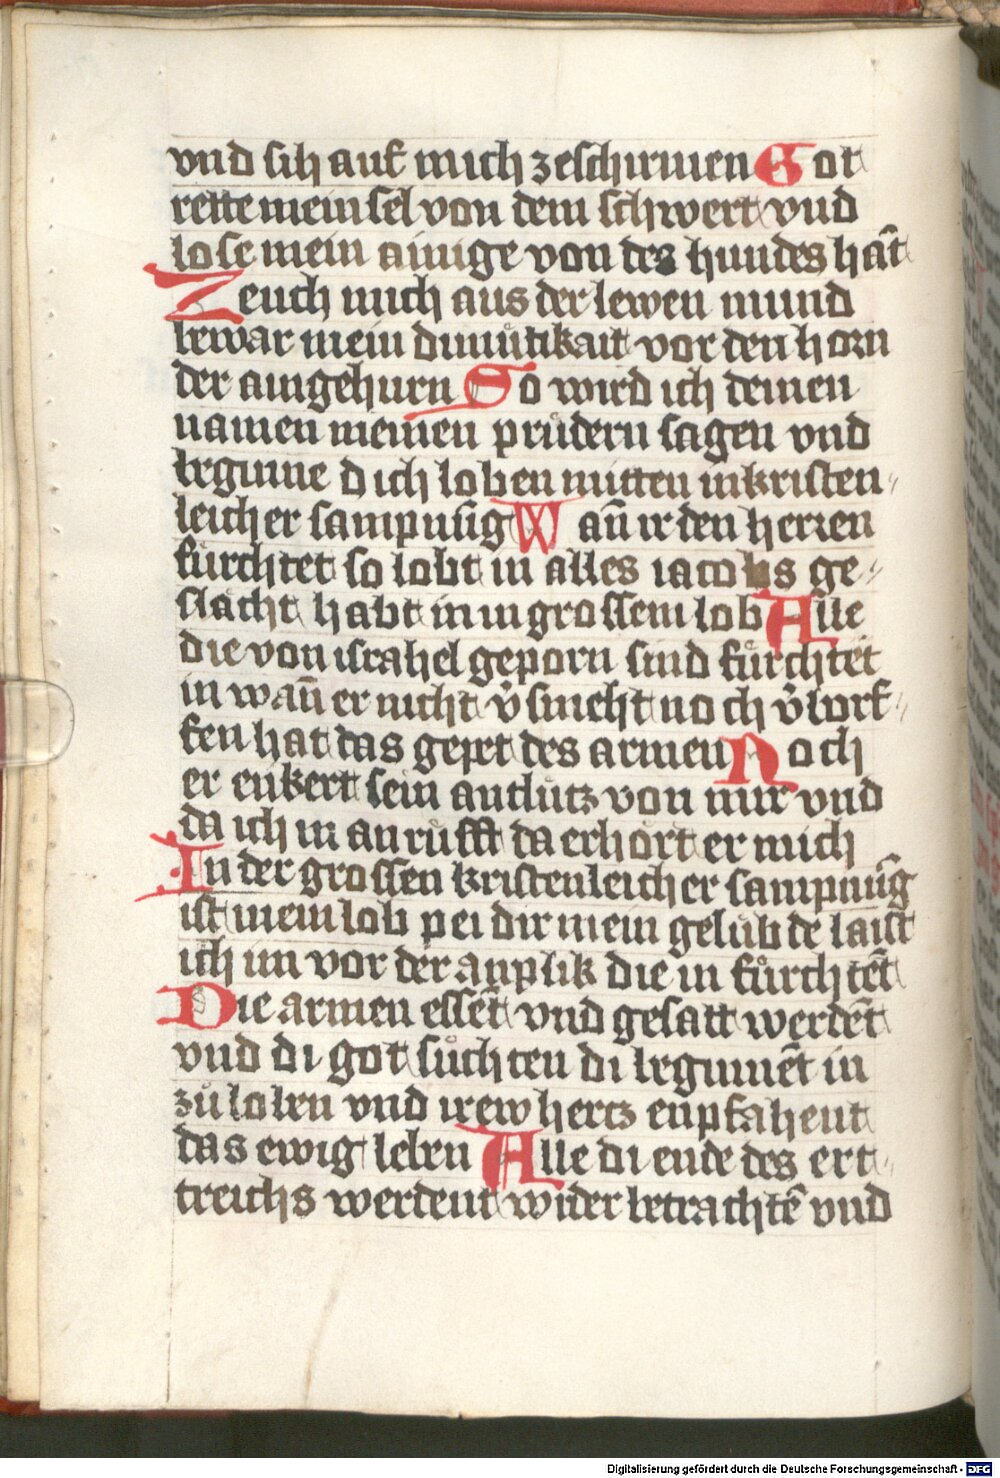 vnd sih auf mich zeschirmen Got
rette mein sel von dem schwert vnd
lose mein ainige von des hundes hāt
Zeuch mich aus der lewen mund
bewar mein dimuͤtikait vor den horn
der aingehurn So wird ich deinen
namen meinen pruͤdern sagen vnd
beginne dich loben mitten in kristen-
leicher sampnūg Wān ir den herren
furchtet so lobt in alles iacobs ge-
slacht habt in in grossem lob Alle
die von israhel geporn sind fuͤrchtet
in wān er nicht v̓smeht noch v̓worf-
fen hat das gepet des armen Noch
er enkert sein antlutz von mir vnd
da ich in an ruͤfft da erhort er mich
In der grossen kristenleicher sampnūg
ist mein lob pei dir mein gelubde laist
ich im vor der anplik die in fuͤrchtēt
Die armen essēt vnd gesatt werdēt
vnd di got suͦchten di beginnēt in
zuͦ loben vnd irew hertz enpfahent
das ewig leben Alle di ende des ert-
treichs werdent wider betrachtē vnd
Digitalisierung gefördert durch die Deutsche Forschungsgemeinschaft - DFG